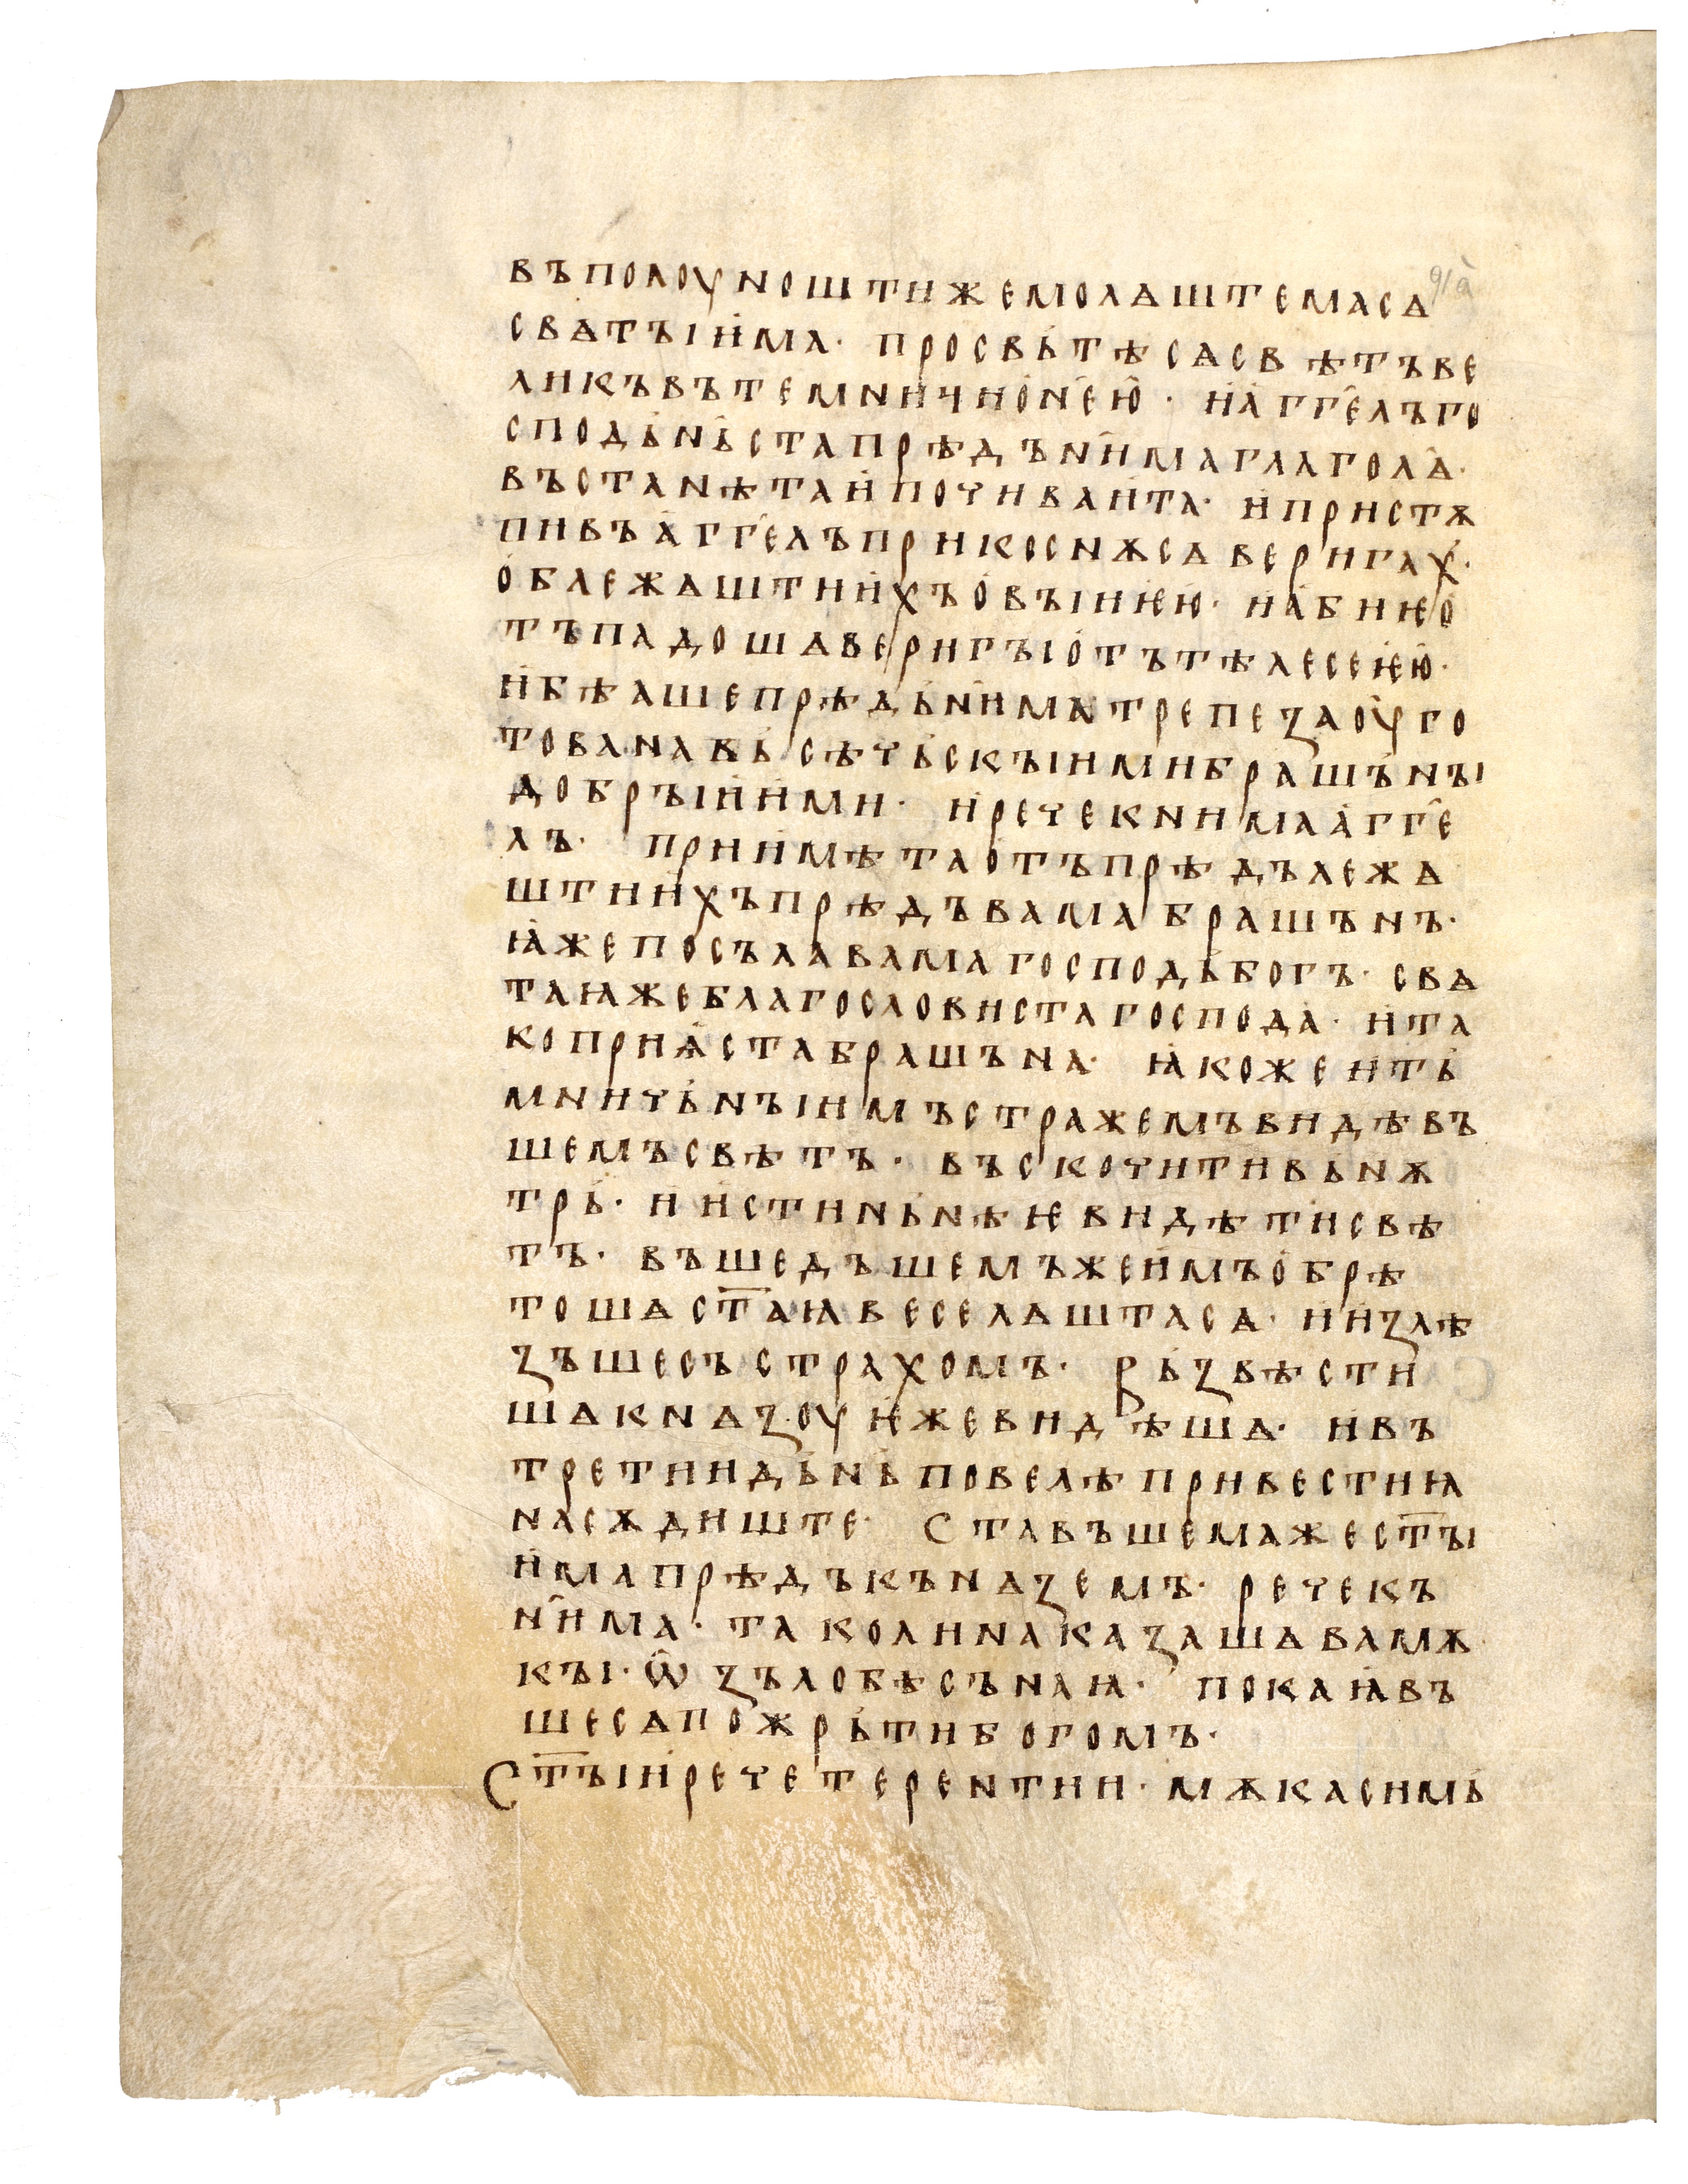 въполоуноштижемолѧштемасѧ
свѧтъіи҆ма· просвь҆тѣсѧсвѣтъве
ликъвътемни҆чио҆н҄е҆ю҆· и҆а҆гг҄е҆лъго
сподь҆н҄ь҆стапрѣдън҄и҆маглагол҄ѧ·
въстанѣтаи҆почиваи҆та· и҆пристѫ
пивъа҆гг҄е҆лъприкоснѫсѧверигах҆·
о҆блежѧштии҆хъо҆въіиѥ҆ю҆· и҆а҆биѥо҆
тъпадошѧверигъіо҆тътѣлесеѥ҆ю҆·
и҆бѣашепрѣдь҆н҄и҆матрепезаоу҆го
тованавь҆сѣчь҆скъіимибрашь҆нъі
добръіи҆и҆ми· и҆речекнимаа҆гг҄е҆
лъ· прии҆мѣтао҆тъпрѣдълежѧ
штии҆хъпрѣдъвамабрашънъ·
ꙗ҆жепосълавамагосподь҆богъ· свѧ
таꙗжеблагословистагоспода· и҆та
коприѩ҆стабрашъна· ꙗ҆кожеи҆ть҆
мничь҆нъіимъстражемъвидѣвъ
шемъсвѣтъ· въскочитивь҆нѫ
трь҆· и҆и҆стинь҆нѣѥвидѣтисвѣ
тъ· въшедъшемъжеи҆мъо҆брѣ
тошѧст҃аꙗвеселѧштасѧ· и҆и҆злѣ
зъшесъстрахомъ· Вь҆звѣсти
шѧкнѧзоуѥ҆жевидѣшѧ· и҆въ
третиидь҆нь҆повелѣпривестиꙗ
насѫдиште· Ставъшемажест҃ъі
и҆мапрѣдъкънѧземъ· речекъ
н҄и҆ма· таколинаказашѧвамѫ
къі· ѡ҆зълобѣсънаꙗ· покаꙗ҆въ
шесѧпожрь҆тибогомъ·
Ст҃ъіи҆речетерентии· мѫкасимь҆